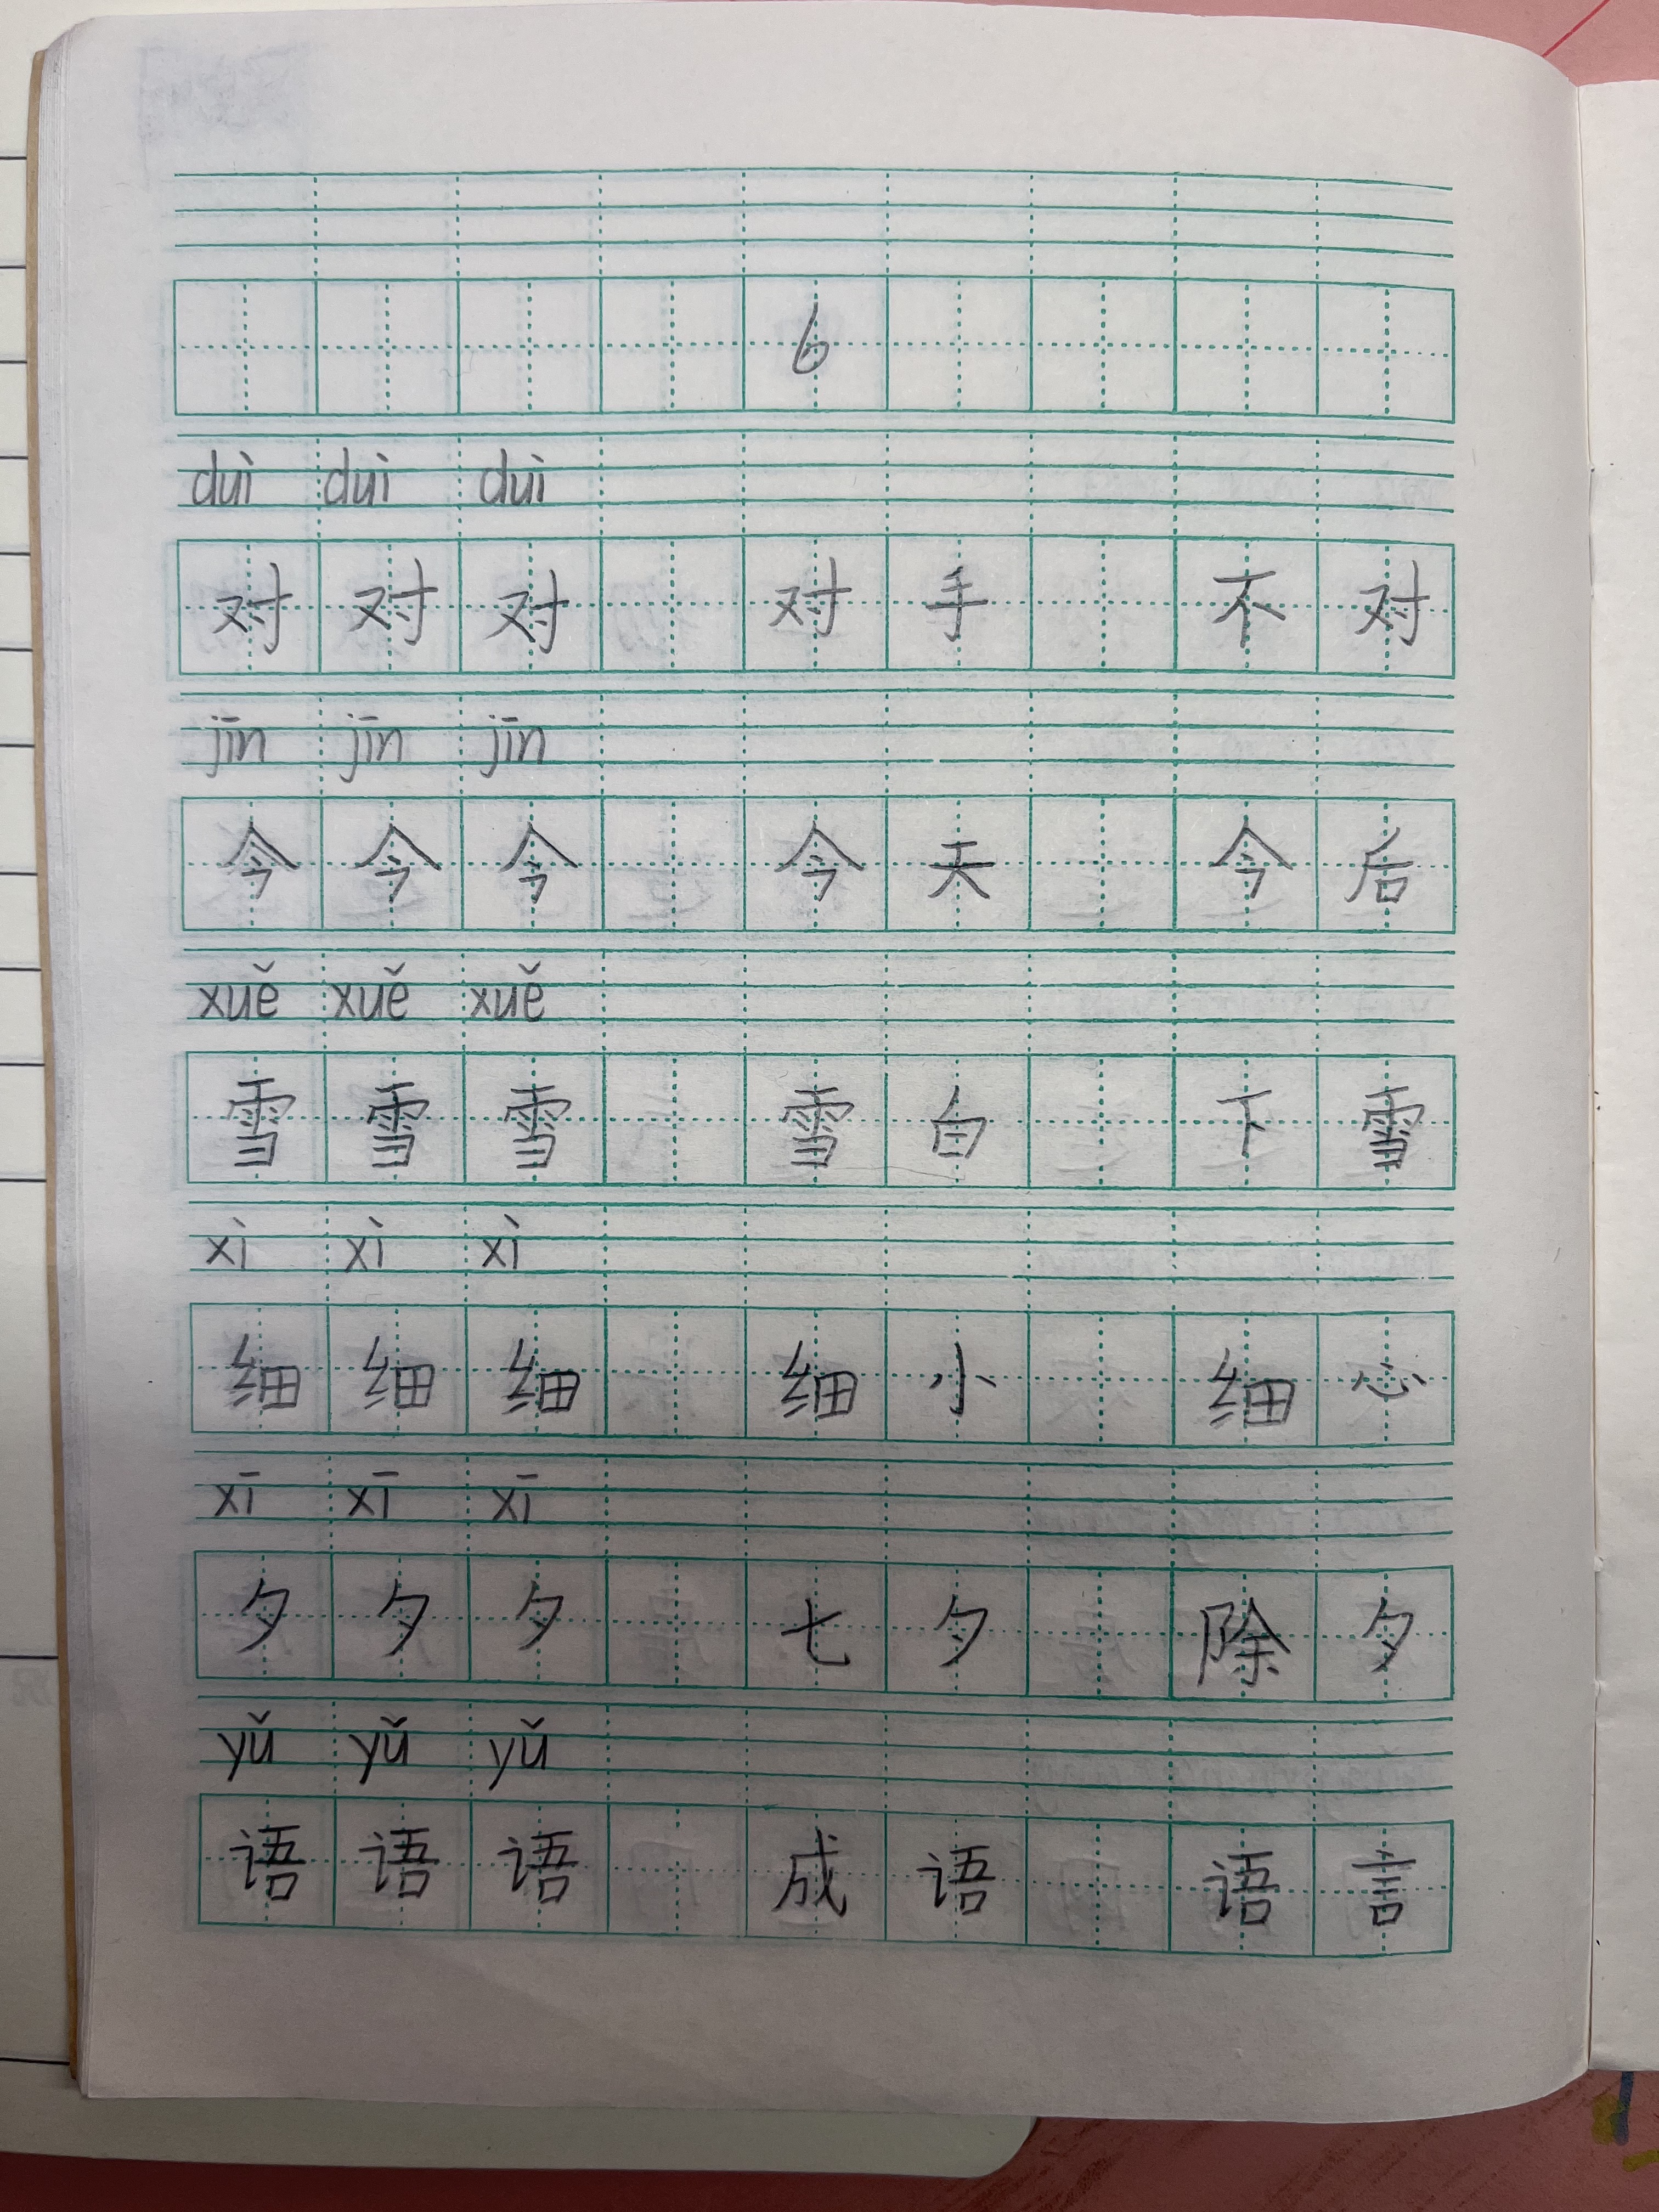 6
duì duì duì
对 对 对 对 手 不 对
jīn jīn jīn
今 今 今 今 天 今 后
xuě xuě xuě
雪 雪 雪 雪 白 下 雪
xì xì xì
细 细 细 细 小 细 心
xī xī xī
夕 夕 夕 七 夕 除 夕
yǔ yǔ yǔ
语 语 语 成 语 语 言